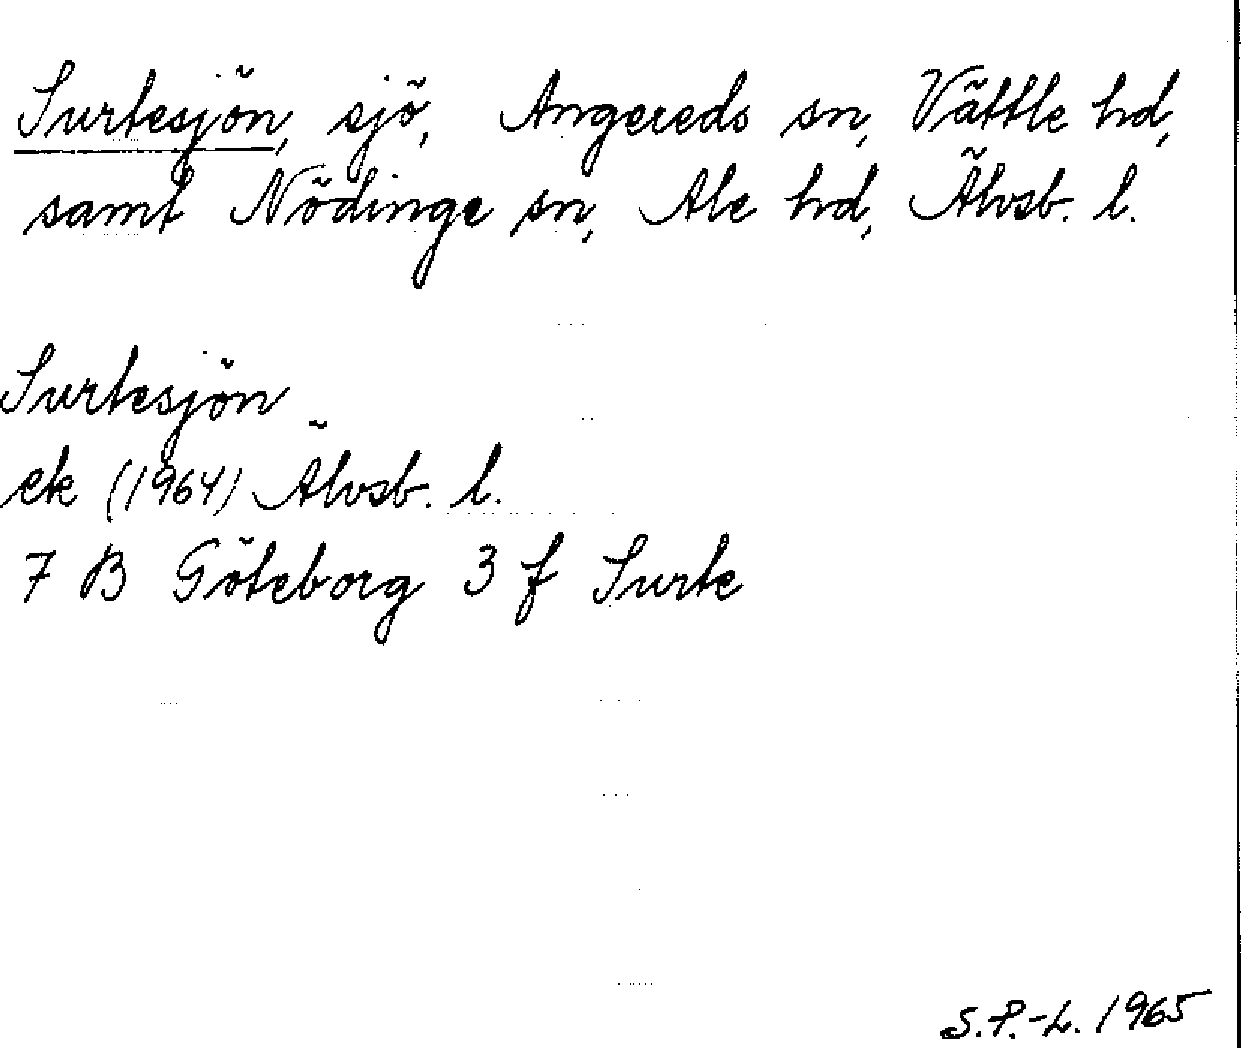 Surtesjön, sjö, Angereds sn, Vättle hd,
samt Nödinge sn, Ale hd, Älvsb. l.
Surtesjön
ek (1964) Älvsb. l.
7 B Göteborg 3 f Surte
S.P.-L. 1965